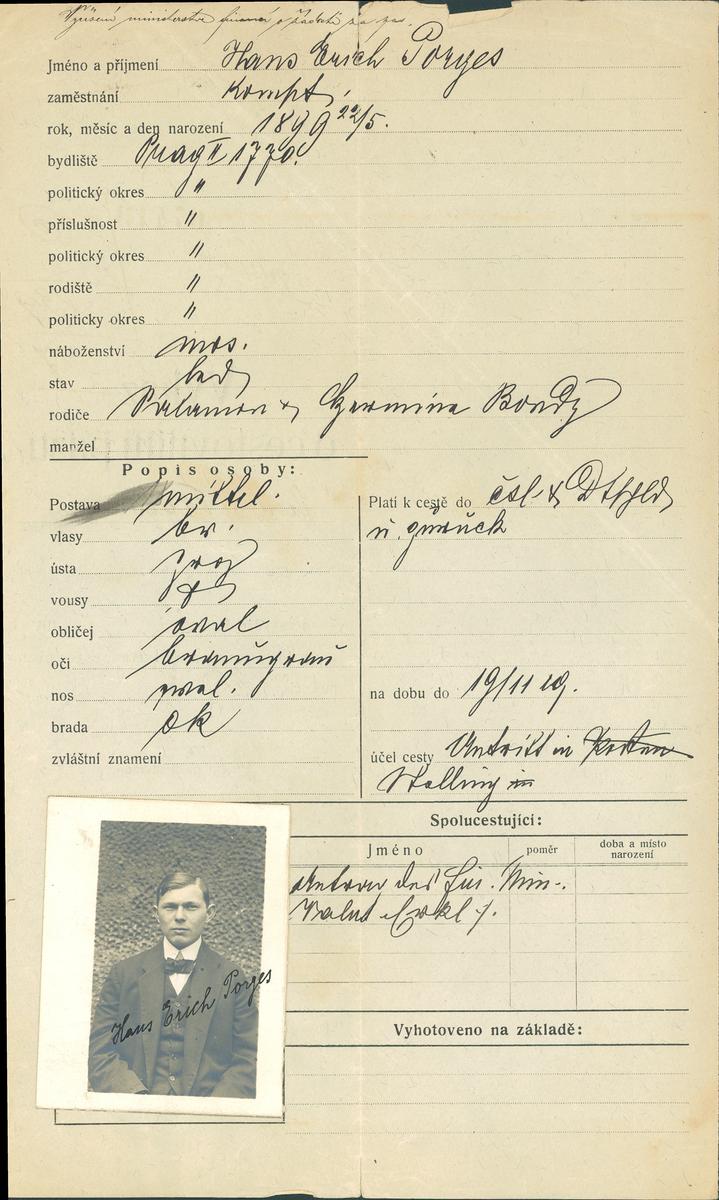 Vyřízení ministerstva financí o žádosti za pas.
Jméno a příjmení Hans Erich Porges
zaměstnání Kompt.
rok, měsíc a den narození 1899 22/5.
bydliště Prag II 1770.
politický okres "
příslušnost "
politický okres "
rodiště "
politicky okres "
náboženství mos.
stav led
rodiče Salamon & Hermine Bondy
manžel
Popis osoby:
Postava mittel.
vlasy br.
ústa prop
vousy
obličej oval
oči braungrau
nos prop.
brada ok
zvláštní znamení
Platí k cestě do čsl. & Dtschld
u. zurück
na dobu do 19/11 19.
účel cesty Antritt in Posten
Stellung in
Spolucestující:
Jméno poměr doba a místo narození
des Fin. Min.
Valut Erkl.
Vyhotoveno na základě:
Hans Erich Porges